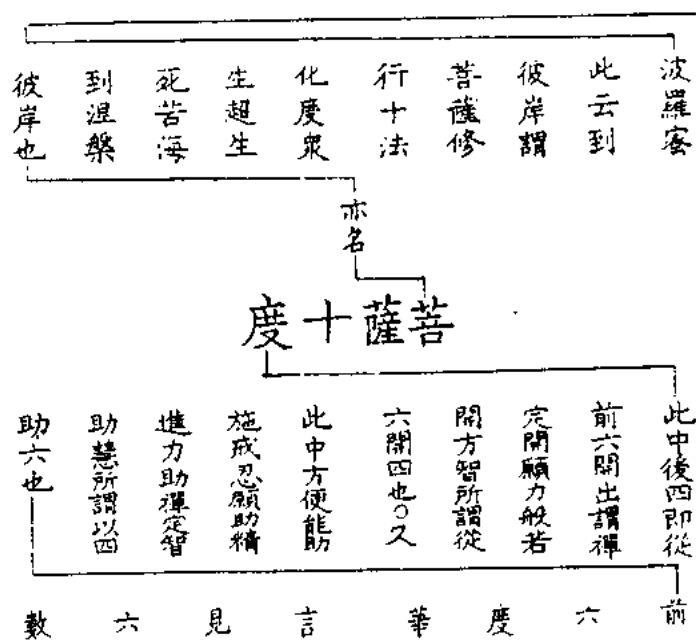 波羅蜜
此云到
彼岸謂
菩薩修
行十法
化度衆
生超生
死苦海
到涅槃
彼岸也
亦名
菩薩十度
此中後四即從
前六開出謂禪
定開願力般若
開方智所謂從
六開四也○又
此中方便能助
施戒忍願助精
進力助禪定智
助慧所謂以四
助六也
前六度華言見六數